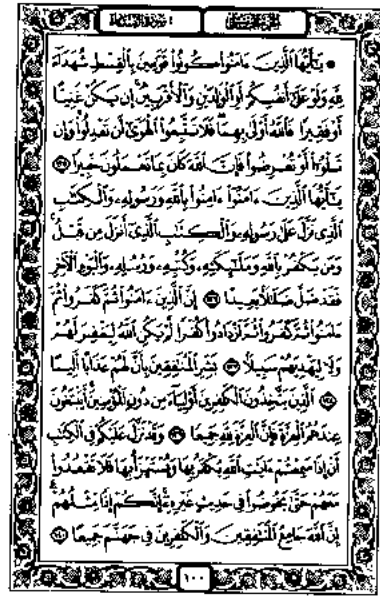 الجزء الخامس سورة النساء
۞ يَٰٓأَيُّهَا ٱلَّذِينَ ءَامَنُواْ كُونُواْ قَوَّٰمِينَ بِٱلۡقِسۡطِ شُهَدَآءَ
لِلَّهِ وَلَوۡ عَلَىٰٓ أَنفُسِكُمۡ أَوِ ٱلۡوَٰلِدَيۡنِ وَٱلۡأَقۡرَبِينَۚ إِن يَكُنۡ غَنِيًّا
أَوۡ فَقِيرٗا فَٱللَّهُ أَوۡلَىٰ بِهِمَاۖ فَلَا تَتَّبِعُواْ ٱلۡهَوَىٰٓ أَن تَعۡدِلُواْۚ وَإِن
تَلۡوُۥٓاْ أَوۡ تُعۡرِضُواْ فَإِنَّ ٱللَّهَ كَانَ بِمَا تَعۡمَلُونَ خَبِيرٗا ١٣٥
يَٰٓأَيُّهَا ٱلَّذِينَ ءَامَنُوٓاْ ءَامِنُواْ بِٱللَّهِ وَرَسُولِهِۦ وَٱلۡكِتَٰبِ
ٱلَّذِي نَزَّلَ عَلَىٰ رَسُولِهِۦ وَٱلۡكِتَٰبِ ٱلَّذِيٓ أَنزَلَ مِن قَبۡلُۚ
وَمَن يَكۡفُرۡ بِٱللَّهِ وَمَلَٰٓئِكَتِهِۦ وَكُتُبِهِۦ وَرُسُلِهِۦ وَٱلۡيَوۡمِ ٱلۡأٓخِرِ
فَقَدۡ ضَلَّ ضَلَٰلَۢا بَعِيدًا ١٣٦ إِنَّ ٱلَّذِينَ ءَامَنُواْ ثُمَّ كَفَرُواْ ثُمَّ
ءَامَنُواْ ثُمَّ كَفَرُواْ ثُمَّ ٱزۡدَادُواْ كُفۡرٗا لَّمۡ يَكُنِ ٱللَّهُ لِيَغۡفِرَ لَهُمۡ
وَلَا لِيَهۡدِيَهُمۡ سَبِيلَۢا ١٣٧ بَشِّرِ ٱلۡمُنَٰفِقِينَ بِأَنَّ لَهُمۡ عَذَابًا أَلِيمًا
١٣٨ ٱلَّذِينَ يَتَّخِذُونَ ٱلۡكَٰفِرِينَ أَوۡلِيَآءَ مِن دُونِ ٱلۡمُؤۡمِنِينَۚ أَيَبۡتَغُونَ
عِندَهُمُ ٱلۡعِزَّةَ فَإِنَّ ٱلۡعِزَّةَ لِلَّهِ جَمِيعٗا ١٣٩ وَقَدۡ نَزَّلَ عَلَيۡكُمۡ فِي ٱلۡكِتَٰبِ
أَنۡ إِذَا سَمِعۡتُمۡ ءَايَٰتِ ٱللَّهِ يُكۡفَرُ بِهَا وَيُسۡتَهۡزَأُ بِهَا فَلَا تَقۡعُدُواْ
مَعَهُمۡ حَتَّىٰ يَخُوضُواْ فِي حَدِيثٍ غَيۡرِهِۦٓ إِنَّكُمۡ إِذٗا مِّثۡلُهُمۡۗ
إِنَّ ٱللَّهَ جَامِعُ ٱلۡمُنَٰفِقِينَ وَٱلۡكَٰفِرِينَ فِي جَهَنَّمَ جَمِيعًا ١٤٠
١٠٠